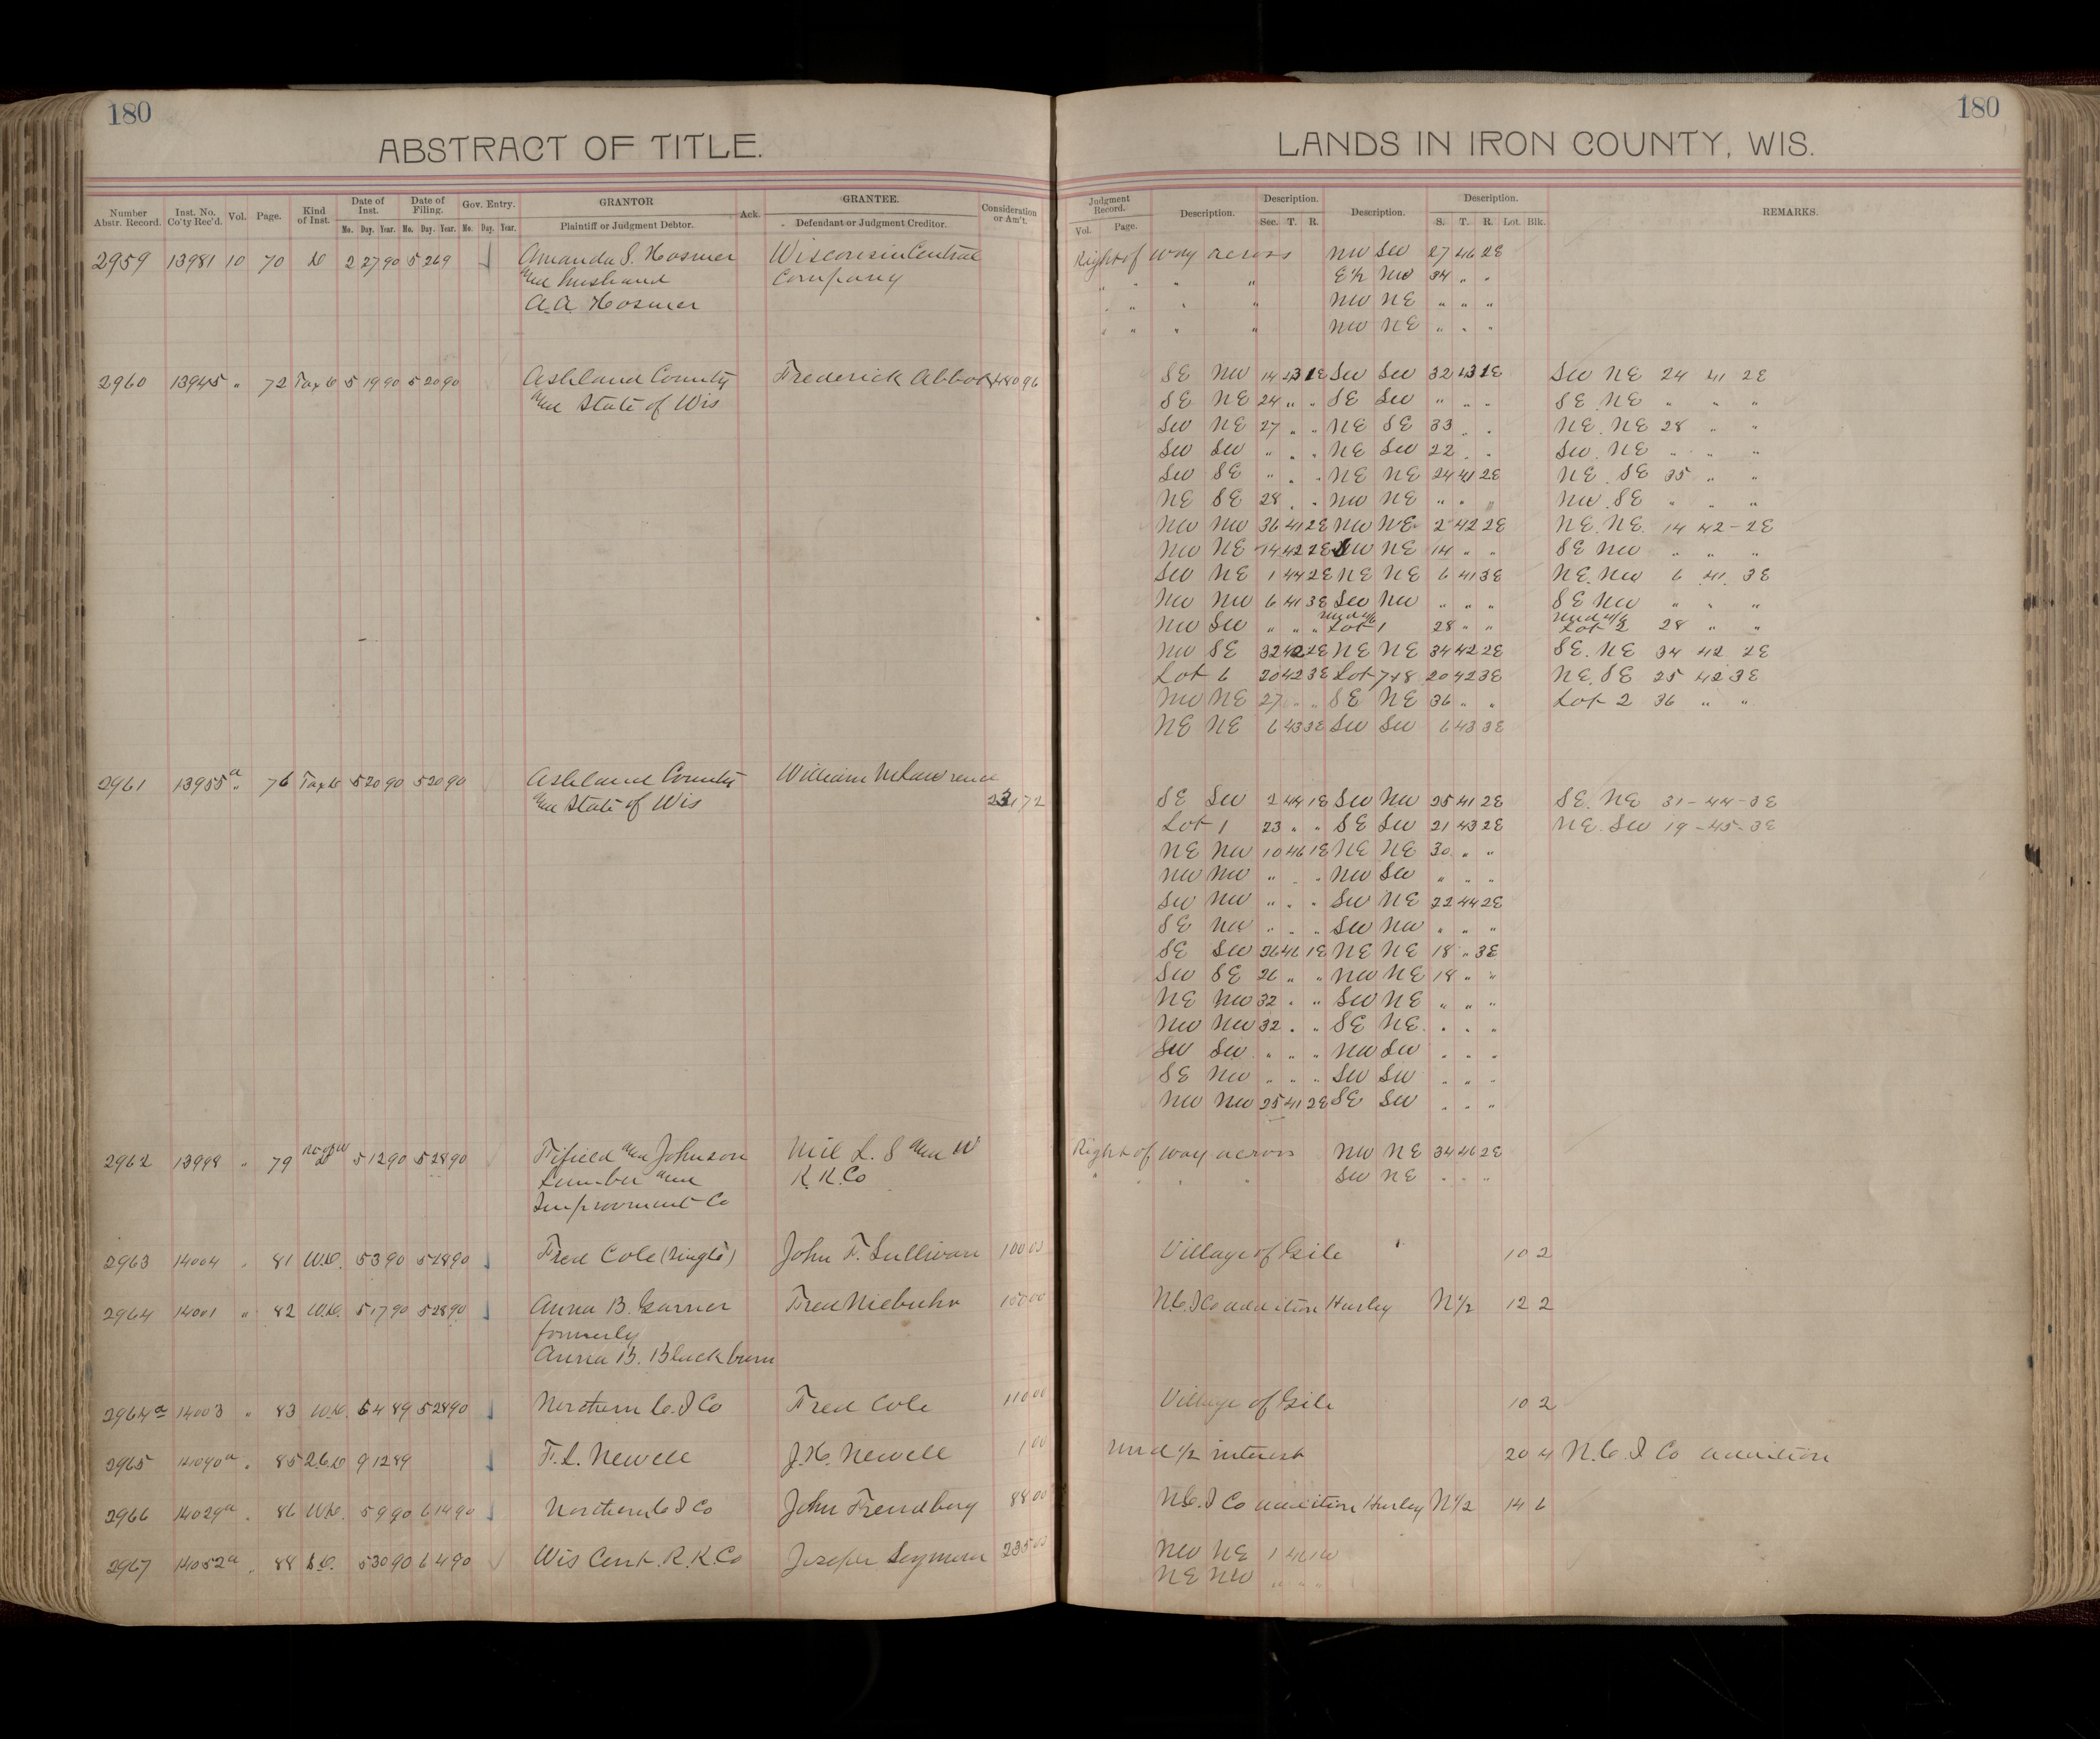 180
180
ABSTRACT OF TITLE.
LANDS IN IRON COUNTY, WIS.
Number Abstr. Record. Inst. No. Co'ty Rec'd. Vol. Page. Kind of Inst. Date of Inst. Date of Filing. Gov. Entry. GRANTOR Ack. GRANTEE. Consideration or Am't.
Mo. Day. Year. Mo. Day. Year. Mo. Day. Year. Plaintiff or Judgment Debtor. Defendant or Judgment Creditor.
Judgment Record. Description. Description. Description. Description. REMARKS.
Vol. Page. Sec. T. R. S. T. R. Lot. Blk.
2959 13981 10 70 D 2 27 90 5 26 9 Amanda S. Hosmer Wisconsin Central
and husband Company
A.A. Hosmer
Right of way across NW SW 27 46 2E
" " " " E½ NW 34 " "
" " " " NW NE " " "
" " " " NW NE " " "
2960 13945 " 72 Tax D 5 19 90 5 20 90 Ashland County Frederick Abbot 480 96
and State of Wis
SE NW 14 43 1E SW SW 32 43 1E SW NE 24 41 2E
SE NE 24 " " SE SW " " " SE NE " " "
SW NE 27 " " NE SE 33 " " NE NE 28 " "
SW SW " " " NE SW 22 " " SW NE " " "
SW SE " " " NE NE 24 41 2E NE SE 35 " "
NE SE 28 " " NW NE " " " NW SE " " "
NW NW 36 41 2E NW NE 2 42 2E NE NE 14 42-2E
NW NE 14 42 2E SW NE 14 " " SE NW " " "
SW NE 1 44 2E NE NE 6 41 3E NE NW 6 41 3E
NW NW 6 41 3E SW NW " " " SE NW " " "
NW SW " " " Lot 1 28 " " Lot 2 28 " "
NW SE 32 42 2E NE NE 34 42 2E SE NE 34 42 2E
Lot 6 20 42 3E Lot 7+8 20 42 3E NE SE 25 42 3E
NW NE 27 " " SE NE 36 " " Lot 2 36 " "
NE NE 6 43 3E SW SW 6 43 3E
2961 13955a " 76 Tax D 5 20 90 5 20 90 Ashland County William
and State of Wis
SE SW 2 44 1E SW NW 25 41 2E SE NE 31-44-3E
Lot 1 23 " " SE SW 21 43 2E NE SW 19-45-3E
NE NW 10 46 1E NE NE 30 " "
NW NW " " " NW SW " " "
SW NW " " " SW NE 22 44 2E
SE NW " " " SW NW " " "
SE SW 26 46 1E NE NE 18 " 3E
SW SE 26 " " NW NE 18 " "
NE NW 32 " " SW NE " " "
NW NW 32 " " SE NE " " "
SW SW " " " NW SW " " "
SE NW " " " SW SW " " "
NW NW 25 41 2E SE SW " " "
2962 13998 " 79 5 12 90 5 28 90 Fifield and Johnson Mil L. S and W
Lumber and R.R. Co
Improvement Co
Right of way across NW NE 34 46 2E
" " " " SW NE " " "
2963 14004 " 81 W.D. 5 3 90 5 28 90 Fred Cole (Single) John F. Sullivan 100 00 Village of Gile 10 2
2964 14001 " 82 W.D. 5 17 90 5 28 90 Anna B. Garner Fred Niebuhr N.C.I Co addition Hurley N½ 12 2
formerly
Anna B. Blackburn
2964a 14003 " 83 W.D. 5 4 89 5 28 90 Northern C. I Co Fred Cole 110 00 Village of Gile 10 2
2965 14090a " 85 Q.C.D 9 12 89 F. L. Newell J.H. Newell 1 00 und ½ interest 20 4 N.C. I Co addition
2966 14029a " 86 W.D. 5 9 90 6 14 90 Northern C I Co John 88 00 N.C. I Co addition Hurley N½ 14 6
2967 14052a " 88 D. 5 30 90 6 4 90 Wis Cent. R.R. Co Joseph Seymour 235 00 NW NE 1 46 1W
NE NW " " "